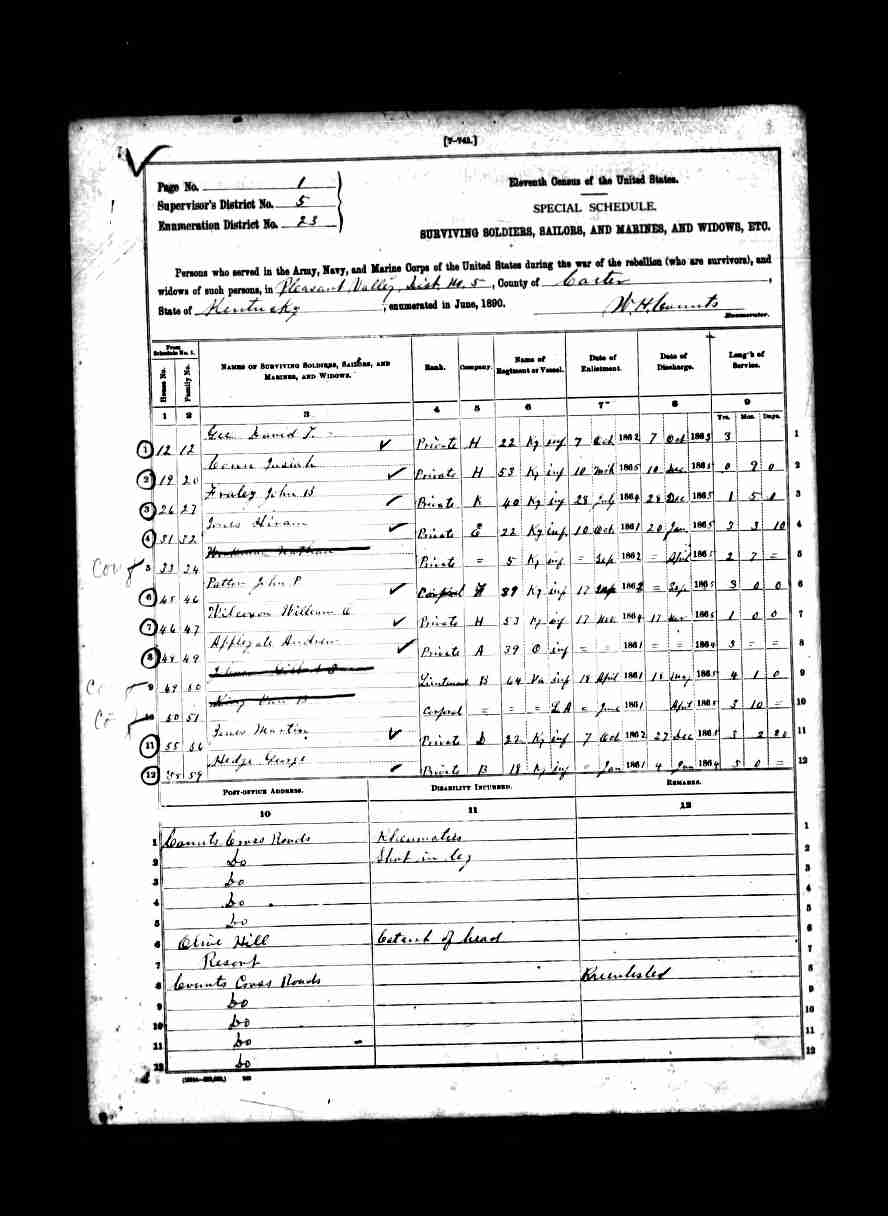 [7-741.]
Page No. 1
Supervisor's District No. 5
Enumeration District No. 23
Eleventh Census of the United States.
SPECIAL SCHEDULE.
SURVIVING SOLDIERS, SAILORS, AND MARINES, AND WIDOWS, ETC.
Persons who served in the Army, Navy, and Marine Corps of the United States during the war of the rebellion (who are survivors), and
widows of such persons, in Pleasant Valley, Dist No. 5, County of Carter,
State of Kentucky; enumerated in June, 1890. W. H. Counts
Enumerator.
From Schedule No. 1. House No. Family No. NAMES OF SURVIVING SOLDIERS, SAILORS, AND MARINES, AND WIDOWS. Rank. Company. Name of Regiment or Vessel. Date of Enlistment. Date of Discharge. Length of Service.
1 2 3 4 5 6 7 8 9
Yrs. Mos. Days.
1 12 12 Gee David T. Private H 22 Ky inf 7 Oct 1862 7 Oct 1863 3 1
2 19 20 Josiah Private H 53 Ky inf 10 Mch 1865 10 Dec 1865 0 9 0 2
3 26 27 Fraley John B Private K 40 Ky inf 28 July 1864 28 Dec 1865 1 5 0 3
4 31 32 Jones Hiram Private E 22 Ky inf. 10 Oct 1861 20 Jan 1865 3 3 10 4
5 33 34 Private = 5 Ky inf = Sep 1862 = April 1865 2 7 = 5
6 45 46 Patton John P Corporal 39 Ky inf 17 1862 = Sep 1865 3 0 0 6
7 46 47 Wilcoxson William Private H 53 Ky inf 17 1864 17 1865 1 0 0 7
8 48 49 Applegate Andrew Private A 39 O inf = = 1861 = = 1864 3 = = 8
9 49 50 Lieutenant B 64 Va inf 18 April 1861 18 May 1865 4 1 0 9
10 50 51 Corporal = = = = June 1861 April 1865 3 10 = 10
11 55 56 Jones Martin Private D 22 Ky inf 7 Oct 1862 27 Dec 1865 3 2 20 11
12 58 59 Hedge George Private B 18 Ky inf = Jan 1861 4 Jan 1864 3 0 = 12
POST-OFFICE ADDRESS. DISABILITY INCURRED. REMARKS.
10 11 12
1 Counts Cross Roads Rheumatism 1
2 Do Shot in leg 2
3 Do 3
4 Do 4
5 Do 5
6 Olive Hill Catarrh of head 6
7 Resort 7
8 Counts Cross Roads Reenlisted 8
9 Do 9
10 Do 10
11 Do 11
12 Do 12